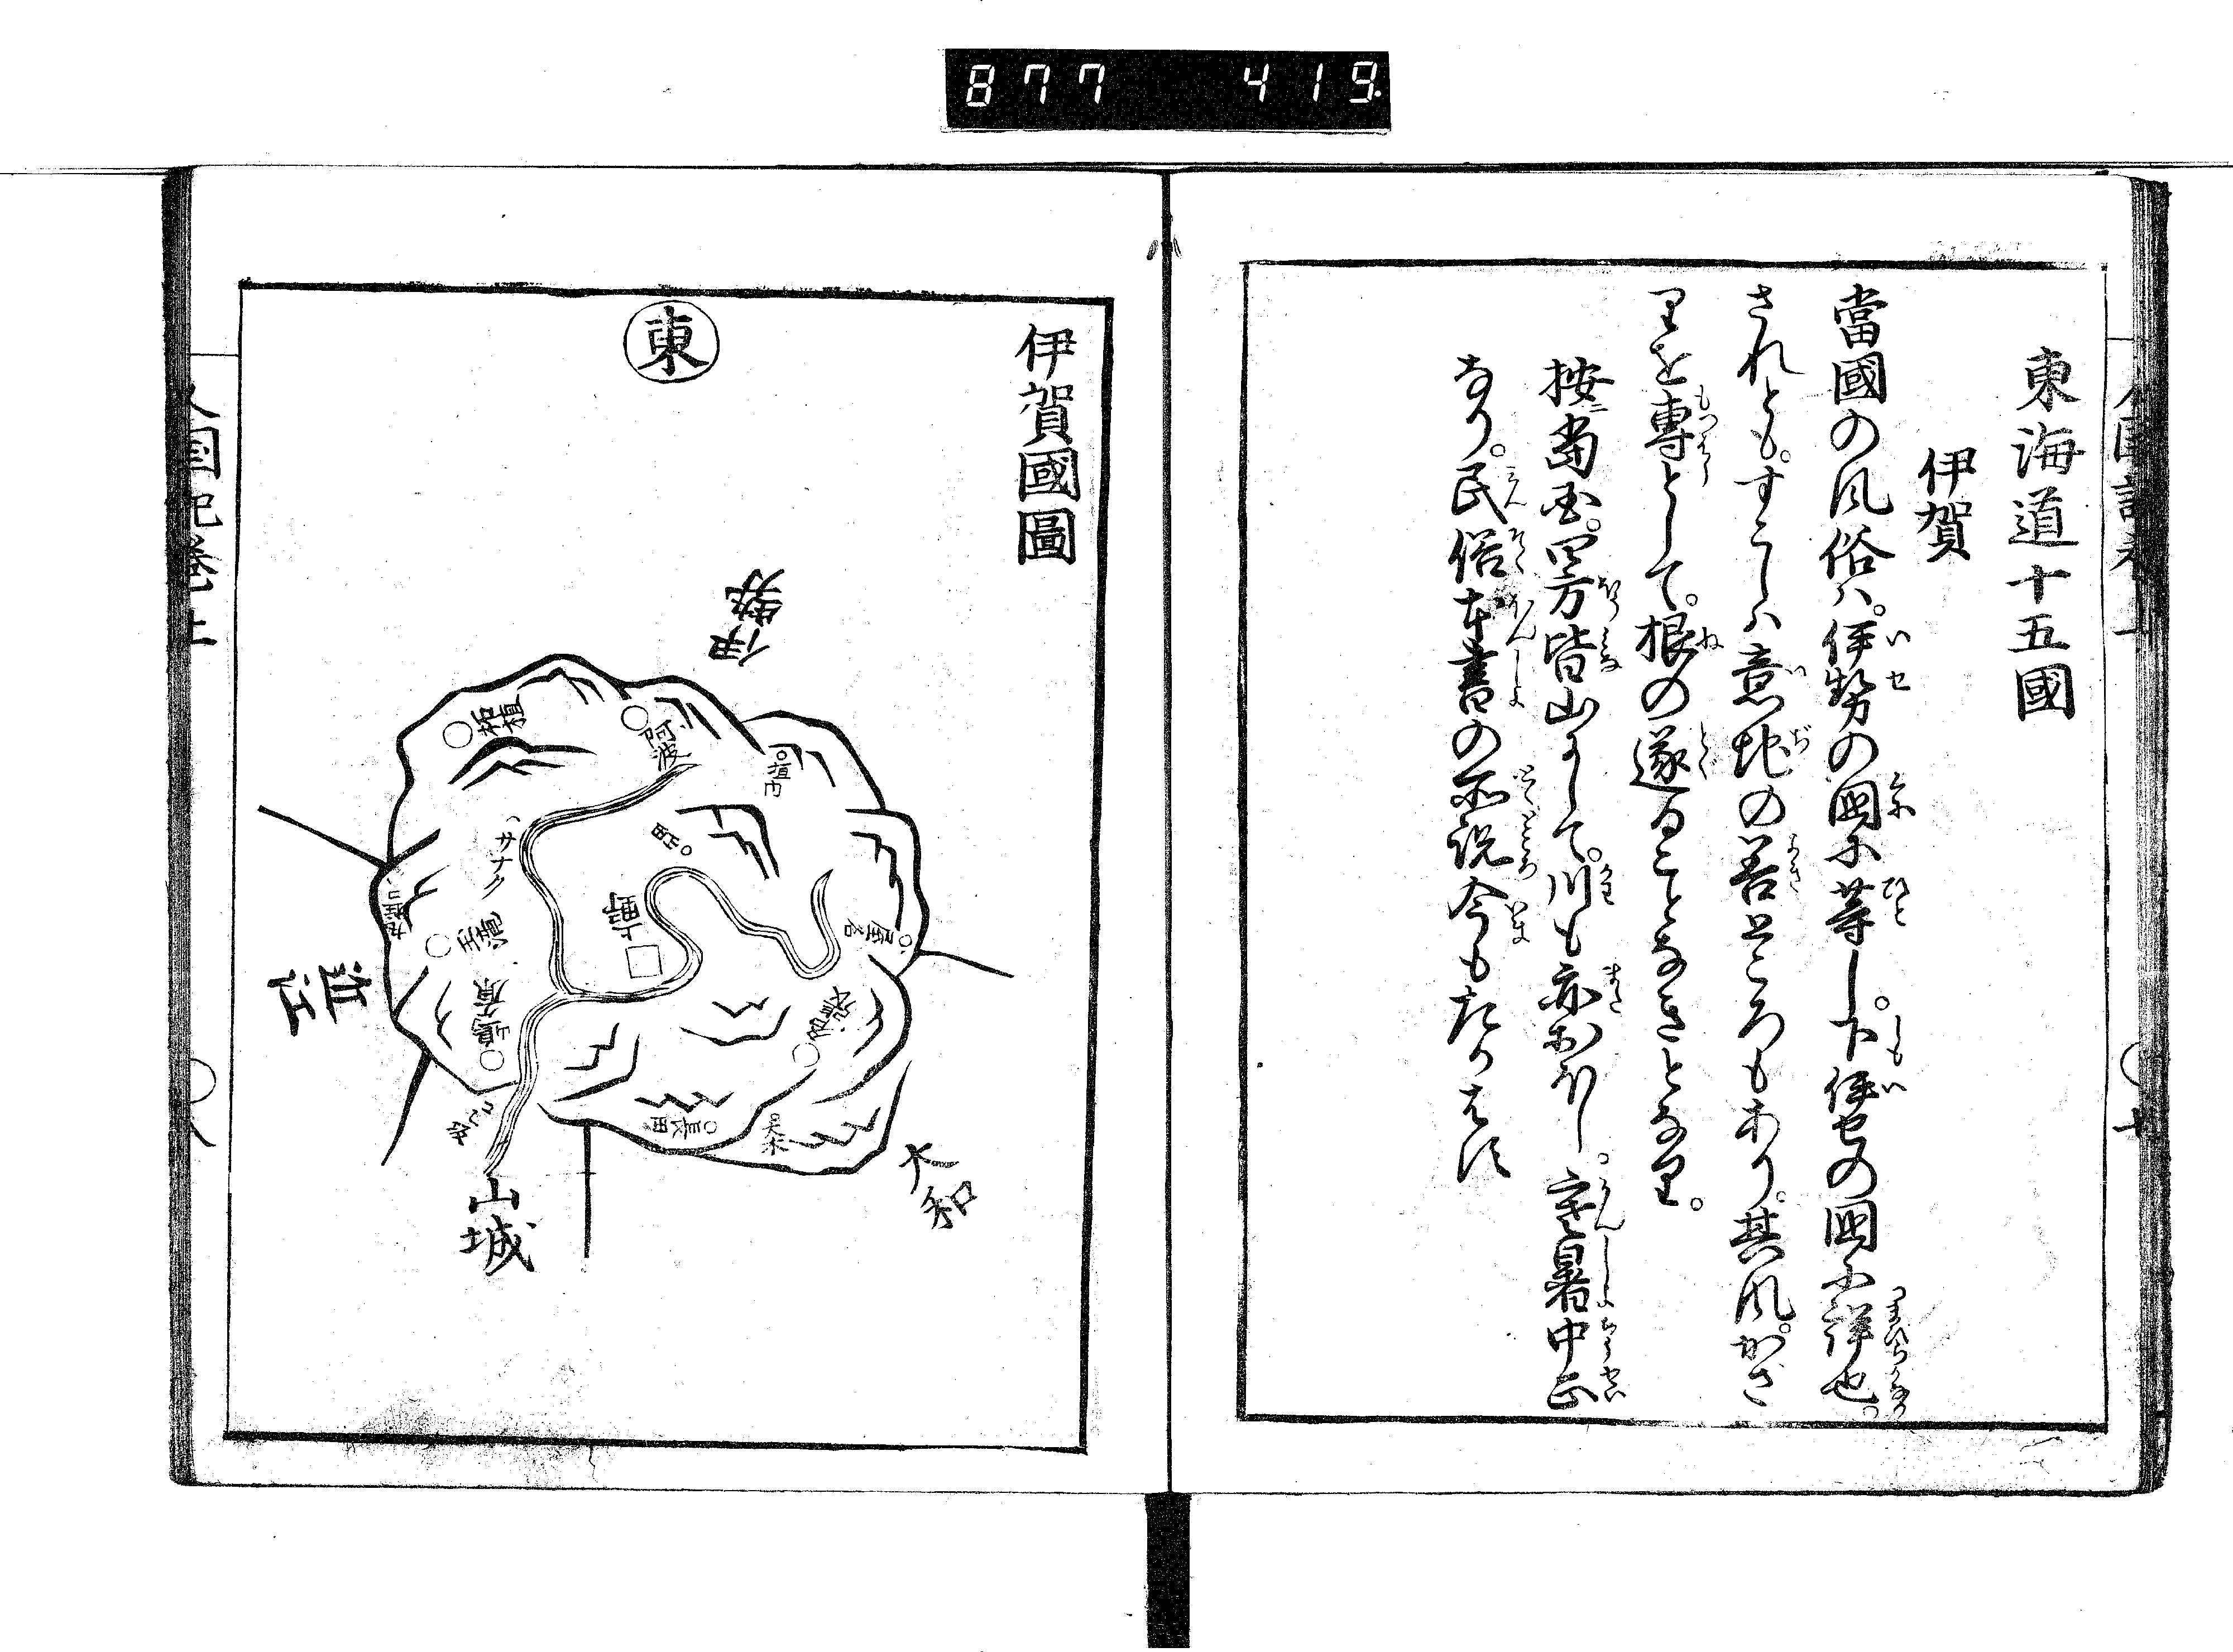 877 419
東海道十五國
伊賀
當國の風俗ハ。伊勢の國に等し。下伊セの國に詳也。
されとも。すこしハ意地の善ところもあり。其風。かざ
りを專として。根の遂ることなきとなり。
按ニ當国。四方皆山にして。川も亦おほし。寒暑中正
なり。民俗本書の所説今もたかはす
伊賀國圖
東
伊勢
柘植
阿波
垣内
上野
嶋原
名張
長田
近江
大和
山城